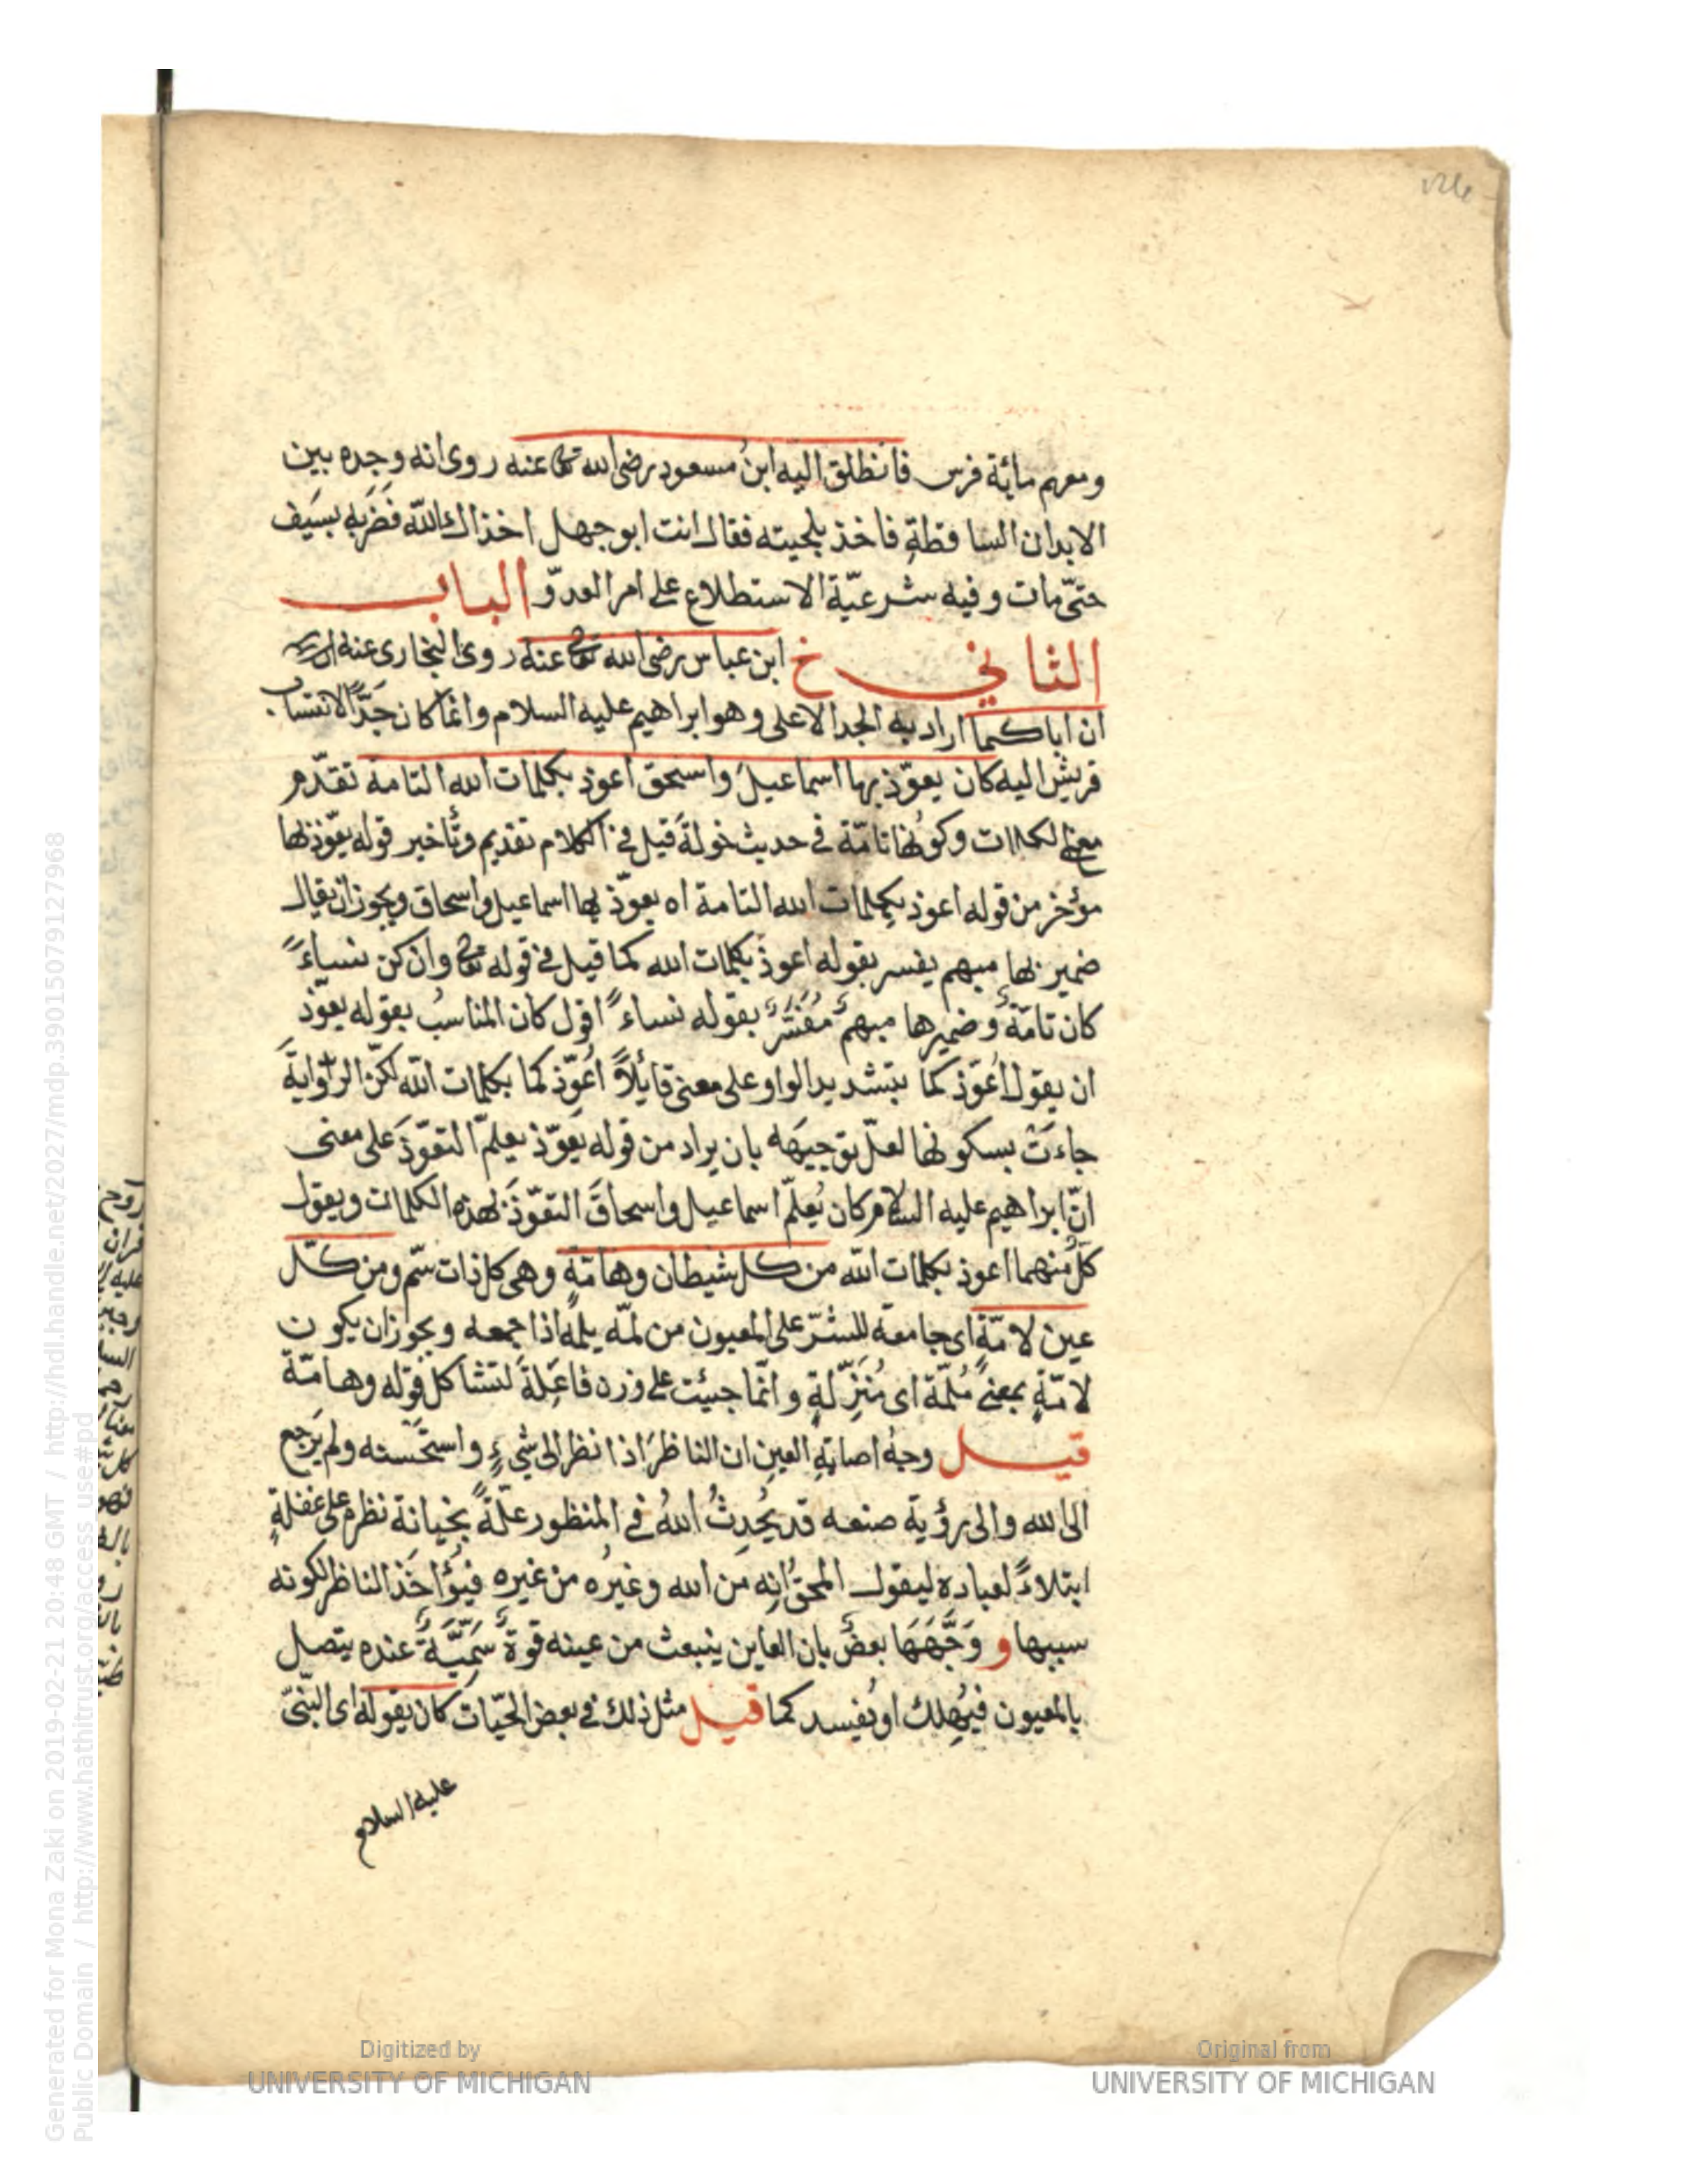 ومعهم مائة فرس فانطلق اليه ابن مسعود رضى الله تعالى عنه روى انه وجده بين
الابدان الساقطة فاخذ بلحيته فقال انت ابو جهل اخذاك الله فضربه بسيف
حتى مات وفيه شرعية الاستطلاع على امر العدو الباب
الثاني خ ابن عباس رضى الله تعالى عنه روى البخارى عنه
ان اباكما اراد به الجد الاعلى وهو ابراهيم عليه السلام وانما كان جدا لانتساب
قريش اليه كان يعوذ بها اسماعيل واسحق اعوذ بكلمات الله التامة تقدم
معنى الكلمات وكونها تامة في حديث خولة قيل في الكلام تقديم وتأخير قوله يعوذ بها
مؤخر من قوله اعوذ بكلمات الله التامة اه يعوذ بها اسماعيل واسحاق ويجوز ان يقال
ضمير بها مبهم يفسر بقوله اعوذ بكلمات الله كما قيل في قوله تعالى وان كن نساءً
كان تامة وضميرها مبهم مفسر بقوله نساءً اقول كان المناسب بقوله يعوذ
ان يقول اُعَوّذكما بتشديد الواو على معنى قايلاً اُعَوّذكما بكلمات الله لكن الرواية
جاءت بسكونها لعل توجيهه بان يراد من قوله يعوذ يعلم التعوذ على معنى
ان ابراهيم عليه السلام كان يعلم اسماعيل واسحاق التعوذ بهذه الكلمات ويقول
كل منهما اعوذ بكلمات الله من كل شيطان وهامة وهى كل ذات سم ومن كل
عين لامة اى جامعة للشر على المعيون من لمه يلمه اذا جمعه ويجوز ان يكون
لامة بمعنى ملمة اى منزلة وانما جيئت على وزن فاعلة لتشاكل قوله وهامة
قيل وجه اصابة العين ان الناظر اذا نظر الى شيء واستحسنه ولم يرجع
الى الله والى رؤية صنعه قد يحدث الله في المنظور علة بخيانة نظره على غفلة
ابتلاءً لعباده ليقول المحق انه من الله وغيره من غيره فيؤاخذ الناظر لكونه
سببها و وجهها بعض بان العاين ينبعث من عينه قوة سمية عنده يتصل
بالمعيون فيهلك او يفسد كما قيل مثل ذلك في بعض الحيات كان يقوله اى النبى
عليه السلام
Generated for Mona Zaki on 2019-02-21 20:48 GMT / http://hdl.handle.net/2027/mdp.39015079127968
Public Domain / http://www.hathitrust.org/access_use#pd
Digitized by
UNIVERSITY OF MICHIGAN
Original from
UNIVERSITY OF MICHIGAN